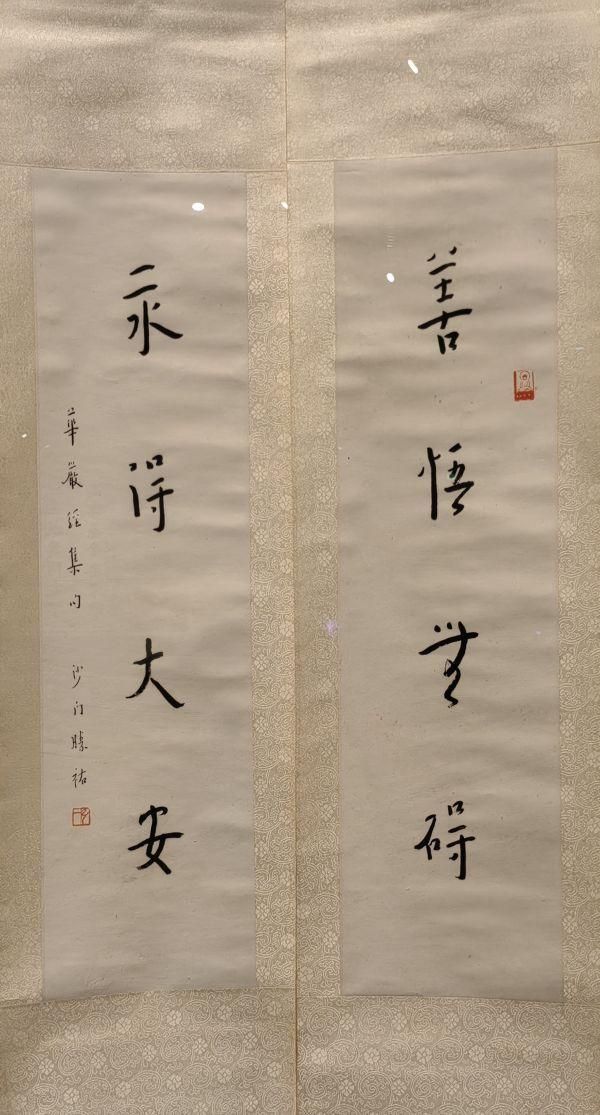 善悟無碍
永得大安
華嚴經集句 沙门勝祐